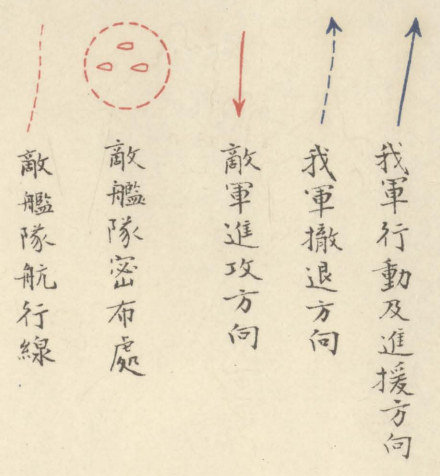 我軍行動及進援方向
我軍撤退方向
敵軍進攻方向
敵艦隊密布處
敵艦隊航行線